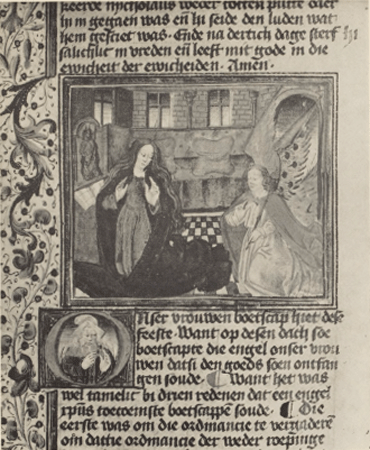 keerde nycholaus weder totten putte daer
in m gegaen was eñ hi seide den luden wat
hem gesciet was. Ende na dertich dage sterf hi
salichlic in vreden eñ leeft mit gode in die
ewicheit der ewicheiden. Amen.
Onser vrouwen boetscap hiet dese
feeste. Want op desen dach soe
boetscapte die engel onser vrou
wen datsi den goeds soen ontfan
gen soude. ¶ Want het was
wel tamelic bi drien redenen dat een engel
xp̄us toecomste boetscappen soude. ¶ Die
eerste was om die ordinancie te vergaderen
om dattie ordinancie der weder roepinge